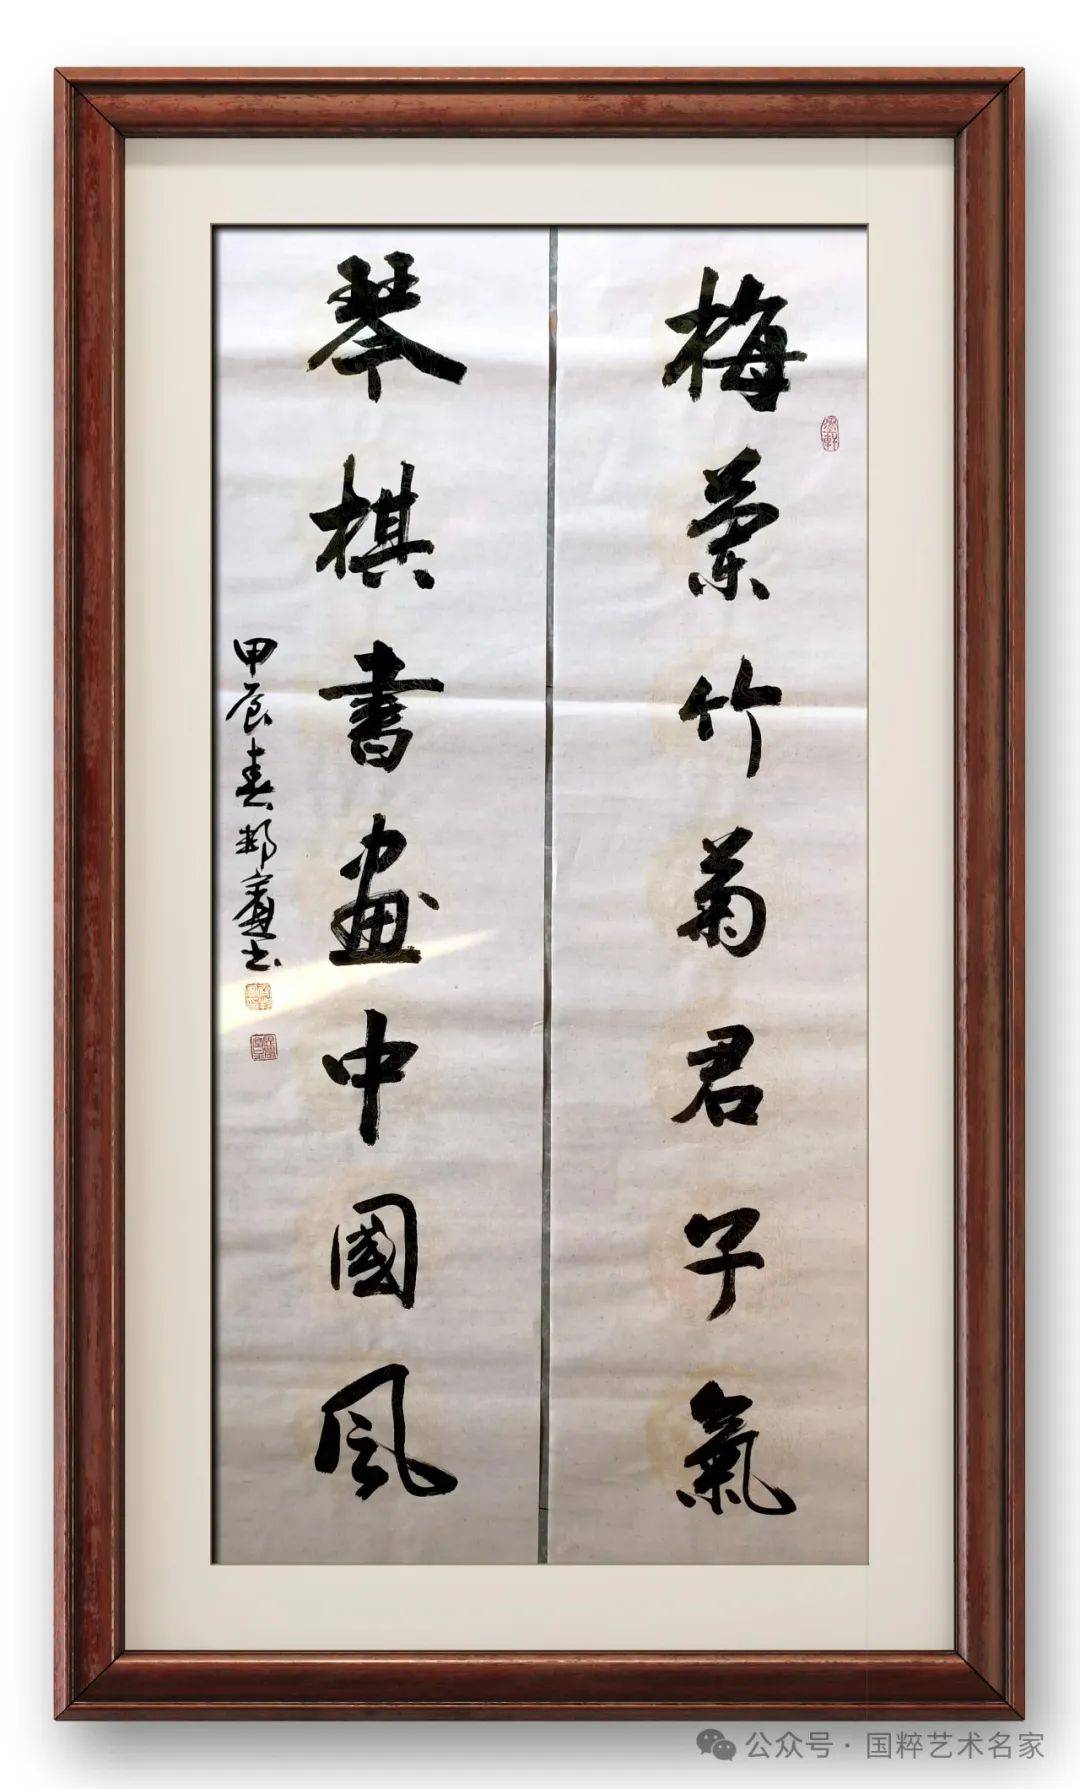 梅蘭竹菊君子氣
琴棋書畫中國風
甲辰春
公众号·国粹艺术名家